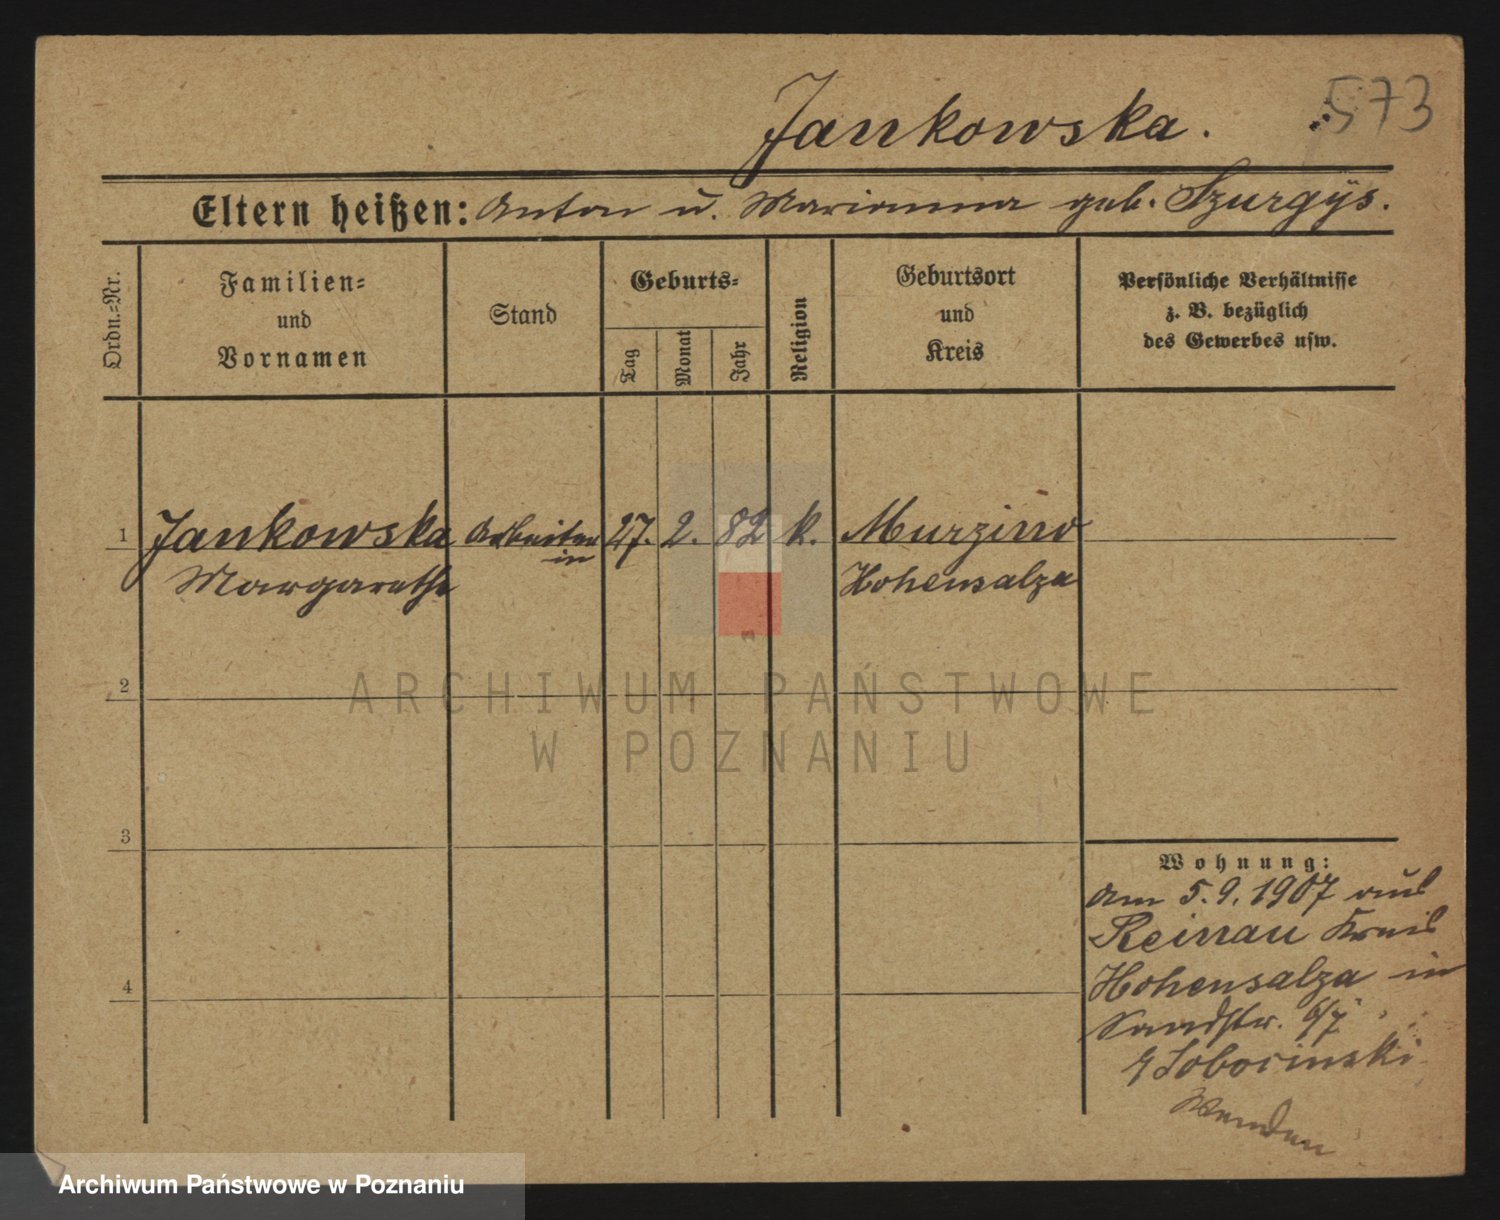 573
Jankowska.
Eltern heißen: Anton u. Marianna geb. Szurgÿs.
Ordn.=Nr.
Familien=
und
Vornamen
Stand
Geburts=
Tag
Monat
Jahr
Religion
Geburtsort
und
Kreis
Persönliche Verhältnisse
z. B. bezüglich
des Gewerbes usw.
1 Jankowska Arbeiter 27. 2. 82 k. Murzino
in
Margarethe Hohensalza
2
3
4
Wohnung:
Am 5.9.1907 aus
Reinau Kreis
Hohensalza in
Sandstr. 6/7
Soborinski
Wenden
ARCHIWUM PAŃSTWOWE
W POZNANIU
Archiwum Państwowe w Poznaniu